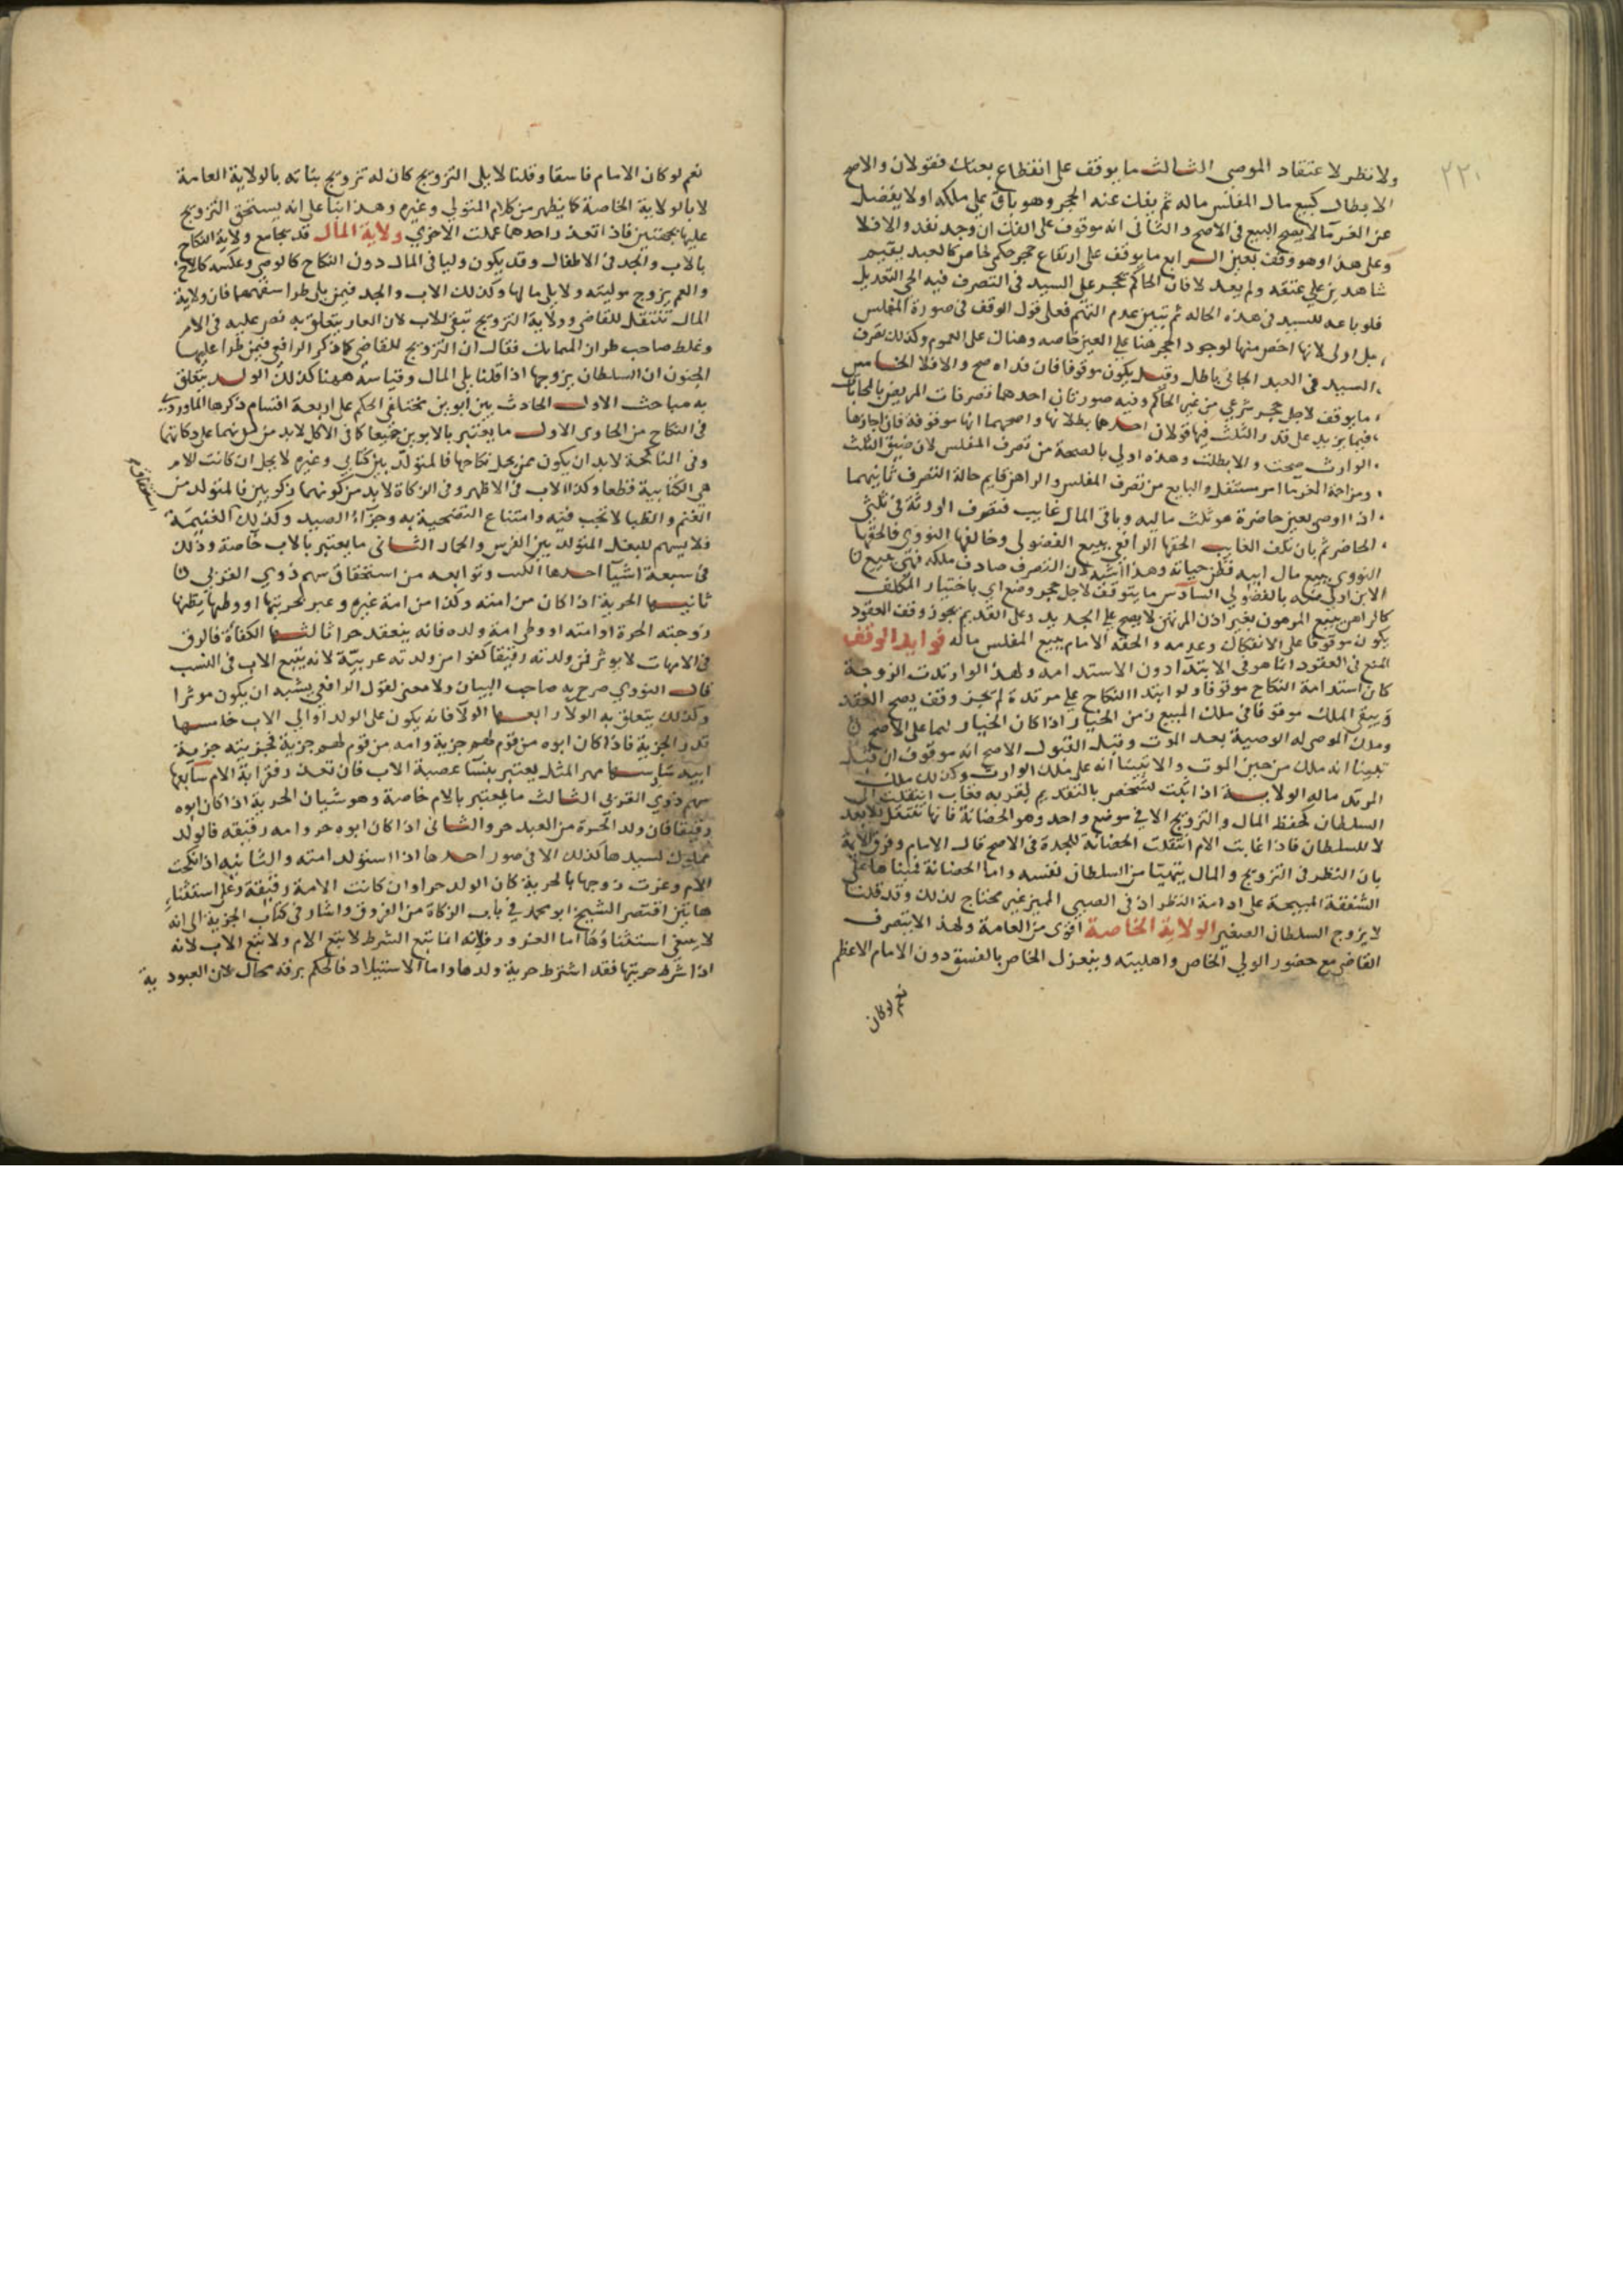 ٢٢١
ولا نظر لاعتقاد الموصي الثالث ما يوقف على انقطاع بعتات فقولان والاصح
الابطال كبيع مال المفلس ماله ثم يفك عنه الحجر وهو باق على ملكه او لا يفضل
عن الغرما لا يصح البيع في الاصح والثاني انه موقوف على الفك ان وجد نفذ والا فلا
وعلى هذا وهو وقف بعين الرابع ما يوقف على ارتفاع حجر حكمي خاص كالعبد يقيم
شاهدين على عتقه ولم يعدلا فان الحاكم يحجر على السيد في التصرف فيه الى التعديل
فلو باعه السيد في هذه الحاله ثم تبين عدم فعلى قول الوقف في صورة المفلس
بل اولى لانها اخص منها لوجود الحجر هنا على العين خاصه وهناك على العموم وكذلك تصرف
السيد في العبد الجاني باطل وقيل يكون موقوفا فان فداه صح والا فلا الخامس
ما يوقف لاجل حجر شرعي من غير الحاكم وفيه صورتان احدهما تصرفات المريض بالمحابات
فيما يزيد على قدر الثلث فيها قولان احدهما بطلانها واصحهما انها موقوفة فان اجازها
الوارث صحت والا بطلت وهذه اولى بالصحة من تصرف المفلس لان ضيق الثلث
ومزاحمة الغرما امر مستقبل والمانع من تصرف المفلس والراهن قايم حالة التصرف ثانيهما
اذا اوصى بعين حاضرة هو ثلث ماليه وباقي المال غايب فتصرف الورثة في ثلثي
الحاضر ثم بان تلف الغايب الحقها الرافعي ببيع الفضولي وخالفه النووي فالحقها
النووي ببيع مال ابيه فظن حياته وهذا اشبه لان التصرف صادف ملكه فهي ببيع
الابن اولى منه بالفضولي السادس ما يتوقف لاجل حجر وضع اي باختيار المكلف
كالراهن يبيع المرهون بغير اذن المرتهن لا يصح على الجديد وعلى القديم يجوز وقف العقود
يكون موقوفا على الانفكاك وعدمه والحقه الامام ببيع المفلس ماله فوايد الوقف
المنع في العقود انما هو في الابتدا دون الاستدامه ولهذا لو ارتدت الزوجة
كان استدامة النكاح موقوفا ولو ابتدا النكاح على مرتدة لم يجز وقف يصح العقد
ويبقى الملك موقوفا في ملك المبيع زمن الخيار اذا كان الخيار لهما على الاصح
وملك الموصى له الوصية بعد الموت وقبل القبول الاصح انه موقوف ان قبل
تبينا انه ملك من حين الموت والا تبينا انه على ملك الوارث وكذلك ملك
المرتد ماله الولاية اذا ثبتت لشخص بالتقديم لقربه فغاب انتقلت الى
السلطان كحفظ المال والتزويج الا في موضع واحد وهو الحضانة فانها تنتقل للابعد
لا للسلطان فاذا غابت الام انتقلت الحضانة للجدة في الاصح قال الامام وفرق الايمة
بان النظر في التزويج والمال يتهيا من السلطان نفسه واما الحضانة فمبناها على
الشفقة المبيحة على ادامة النظر اذ في الصبي المميز غير محتاج لذلك وقد قلنا
لا يزوج السلطان الصغير الولاية الخاصة اقوى من العامة ولهذا لا يتصرف
القاضي مع حضور الولي الخاص واهليته وينعزل الخاص بالفسق دون الامام الاعظم
نعم لو كان
نعم لو كان الامام فاسقا وقلنا لا يلي التزويج كان له تزويج بناته بالولاية العامة
لا بالولاية الخاصة كما يظهر من كلام المتولي وغيره وهذا بنا على انه يستحق التزويج
عليها بجهتين فاذا تعذر احدهما عملت الاخرى ولاية المال قد تجامع ولاية النكاح
بالاب والجد في الاطفال وقد يكون وليا في المال دون النكاح كالوصي وعكسه كالاخ
والعم يزوج موليته ولا يلي مالها وكذلك الاب والجد فيمن طرا سفهها فان ولاية
المال تنتقل للقاضي وولاية التزويج تبقى للاب لان العار يتعلق به نص عليه في الام
وغلط صاحب طراز الممالك فقال ان التزويج للقاضي كما ذكر الرافعي فيمن طرا عليها
الجنون ان السلطان يزوجها اذا قلنا يلي المال وقياسه ههنا كذلك الولد يتعلق
به مباحث الاول الحادث بين ابوين مختلفي الحكم على اربعة اقسام ذكرها الماوردي
في النكاح من الحاوي الاول ما يعتبر بالابوين جميعا كما في الاكل لابد من حل
وفي المناكحة لابد ان يكون ممن يحل نكاحها فالمتولد بين كتابي وغيره لا يحل ان كانت الام
هي الكتابية قطعا وكذا الاب في الاظهر وفي الزكاة لابد من كونهما زكويين فالمتولد من
الغنم والظبا لا تجب فيه وامتناع التضحية به وجزاء الصيد وكذلك الغنيمة
فلا يسهم للبغل المتولد بين الفرس والحمار الثاني ما يعتبر بالاب خاصة وذلك
في سبعة اشيا احدها النسب وتوابعه من استحقاق سهم ذوي القربى
ثانيها الحرية اذا كان من امته وكذا من امة غيره وغر بحريتها او وطيها يظنها
زوجته الحرة او امته او وطى امة ولده فانه ينعقد حرا ثالثها الكفاة فالرق
في الامهات لا يوثر فمن ولدته رقيقة كفوا من ولدته عربية لانه يتبع الاب في النسب
قال النووي صرح به صاحب البيان ولا معنى لقول الرافعي يشبه ان يكون موثرا
وكذلك يتعلق به الولا رابعها الولا فانه يكون على الولد لموالي الاب خامسها
قدر الجزية فاذا كان ابوه من قوم لهم جزية وامه من قوم لهم جزية فجزيته جزية
ابيه سادسها مهر المثل يعتبر بنسا عصبة الاب فان تعذر فقرابة الام سابعها
سهم ذوي القربى الثالث ما يعتبر بالام خاصة وهو شيان الحرية اذا كان ابوه
رقيقا فان ولد الحرة من العبد حر والثاني اذا كان ابوه حر وامه رقيقه فالولد
مملوك لسيدها كذلك الا في صور احدها اذا استولد امته والثانيه اذا نكحت
الام وغرت زوجها بالحرية كان الولد حرا وان كانت الامة رقيقة وعلى استثناء
هاتين اقتصر الشيخ ابو محمد في باب الزكاة من الفروق واشار في كتاب الجزية الى انه
لا يبغي استثناؤها اما الغرور فلانه انما تبع الشرط لا تبع الام ولا تبع الاب لانه
اذا شرط حريتها فقد اشترط حرية ولدها واما الاستيلاد فالحكم برقه محال لان العبودية